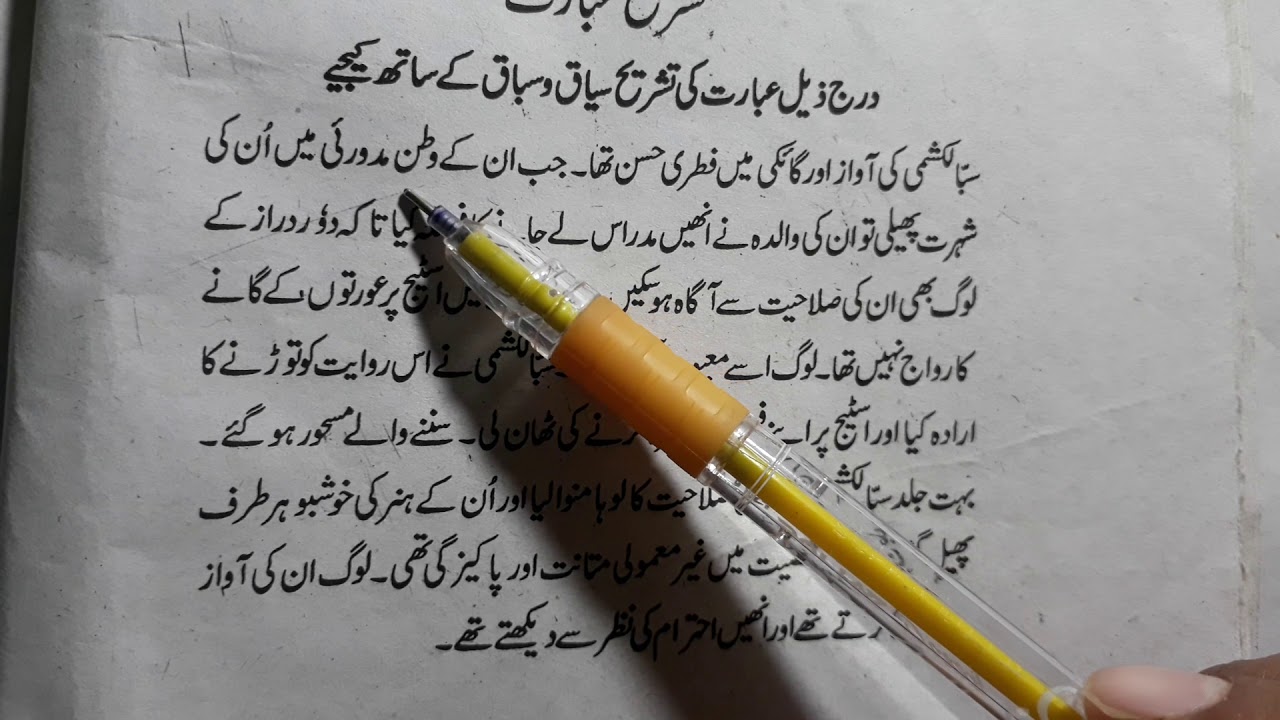 تشریح عبارت
درج ذیل عبارت کی تشریح سیاق و سباق کے ساتھ کیجیے
سبّا لکشمی کی آواز اور گائکی میں فطری حسن تھا۔ جب ان کے وطن مدورئی میں اُن کی
شہرت پھیلی تو ان کی والدہ نے انھیں مدراس لے کیا تاکہ دوٗر دراز کے
لوگ بھی ان کی صلاحیت سے آگاہ ہوسکیں اسٹیج پر عورتوں کے گانے
کا رواج نہیں تھا۔ لوگ اسے سبّا لکشمی نے اس روایت کو توڑنے کا
ارادہ کیا اور اسٹیج پر کرنے کی ٹھان لی۔ سننے والے مسحور ہوگئے۔
بہت جلد سبّا صلاحیت کا لوہا منوا لیا اور اُن کے ہنر کی خوشبو ہر طرف
پھیل میں غیر معمولی متانت اور پاکیزگی تھی۔ لوگ ان کی آواز
تھے اور انھیں احترام کی نظر سے دیکھتے تھے۔